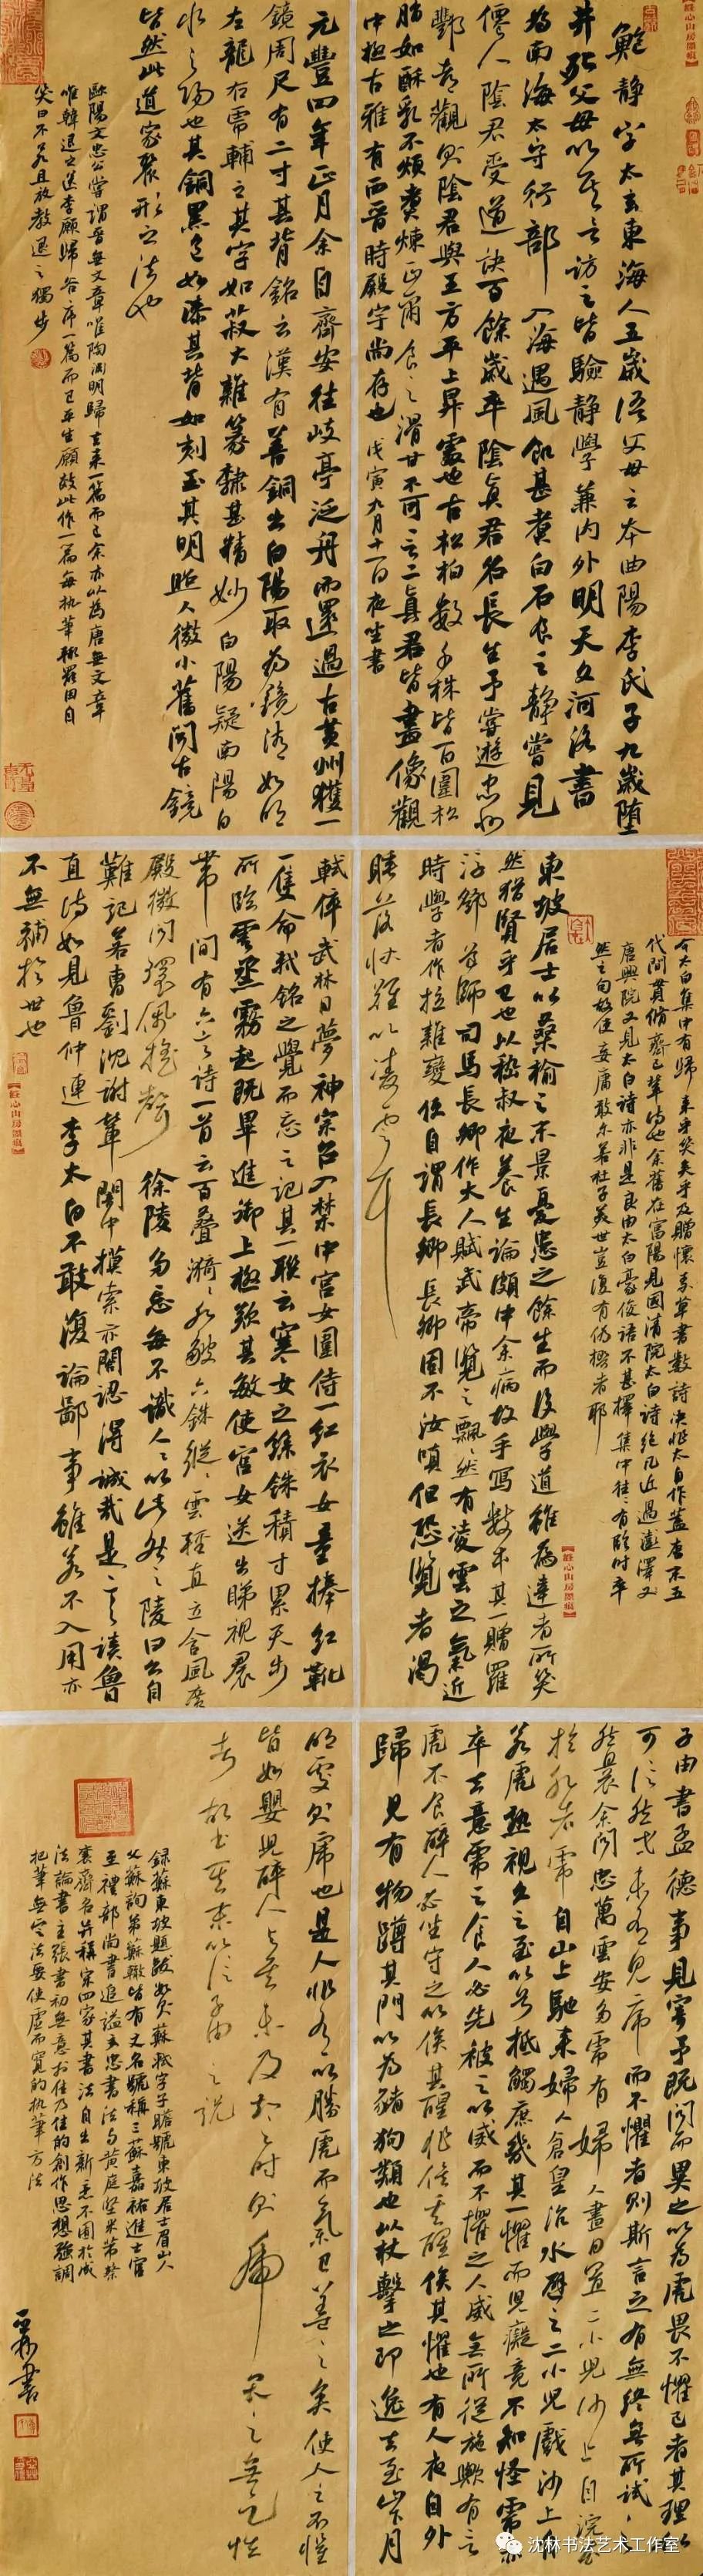 鮑静字太玄東海人五歳語父母云本曲陽李氏子九歳墮
井死父母以其言訪之皆驗静學兼内外明天文河洛書
為南海太守行部入海遇風飢甚煮白石食之静嘗見
僊人陰君受道訣百餘歳卒陰真君名長生予嘗遊忠州
酆都觀則陰君與王方平上昇處也古松柏數千株皆百圍松
脂如酥乳不煩煮煉正爾食之滑甘不可言二真君皆畫像觀
中極古雅有西晋時殿宇尚存也 戊寅九月十一日夜坐書
元豐四年正月余自齊安往岐亭泛舟而還過古黄州獲一
鏡周尺有二寸其背銘云漢有善銅出白陽取為鏡清如明
左龍右虎輔之其字如菽大雜篆隸甚精妙白陽疑南陽白
水之陽也其銅黑色如漆其背如刻玉其明照人微小舊聞古鏡
皆然此道家聚形之法也
歐陽文忠公嘗謂晋無文章唯陶淵明歸去来一篇而已余亦以為唐無文章
唯韓退之送李愿歸谷序一篇而已平生願效此作一篇每執筆輒罷因自
笑曰不若且放教退之獨步
今太白集中有歸来乎笑矣乎及贈懷素草書數詩决非太白作蓋唐末五
代間貫休齊己輩詩也余舊在富陽見國清院太白詩絶凡近過彭澤
唐興院又見太白詩亦非是良由太白豪俊語不甚擇集中往往有臨時卒
然之句故使妄庸敢尔若杜子美世豈復有偽撰者耶
東坡居士以桑榆之末景憂患之餘生而後學道雖為達者所笑
然猶賢乎已也以嵇叔夜養生論頗中余病故手寫數本其一贈羅
浮鄧道師 司馬長卿作大人賦武帝覽之飄飄然有凌雲之氣近
時學者作拉雜變便自謂長卿長卿固不汝嗔但恐覽者渴
睡落牀難以凌雲耳
軾倅武林日夢神宗召入禁中宫女圍侍一紅衣女童捧紅靴
一隻命軾銘之覺而忘之記其一聯云寒女之絲銖積寸累天步
所臨雲蒸霧起既畢進御上極歎其敏使宫女送出睇視裙
帶間有六言詩一首云百疊漪漪水皺六銖縰縰雲輕直立含風廣
殿微聞環佩摇聲 徐陵多忘每不識人人以此咎之陵曰公自
難記若曹劉沈謝輩闇中摸索亦闇認得誠哉是言 談魯
直詩如見魯仲連李太白不敢復論鄙事雖若不入用亦
不無補於世也
子由書孟德事見寄予既聞而異之以為虎畏不懼己者其理似
可信然世未有見虎而不懼者則斯言之有無終無所試之
然曩余聞忠萬雲安多虎有婦人晝日置二小兒沙上自浣衣
於水者虎自山上馳来婦人倉皇沈水避之二小兒戲沙上自
若虎熟視久之至以首抵觸庶幾其一懼而兒癡竟不知怪虎亦
卒去意虎之食人必先被之以威而不懼之人威無所從施歟有言
虎不食醉人必坐守之以俟其醒非俟其醒俟其懼也有人夜自外
歸見有物蹲其門以為豬狗類也以杖擊之即逸去至山下月
明處則虎也是人非有以勝虎而氣已蓋之矣使人之不懼
皆如嬰兒醉人與其未及知之時則虎畏之無足怪
者故書其末以信子由之説
録蘇東坡題跋如則蘇軾字子瞻號東坡居士眉山人
父蘇詢弟蘇轍皆有文名號稱三蘇嘉祐進士官
至禮部尚書追謚文忠書法与黄庭堅米芾蔡
襄齊名并稱宋四家其書法自出新意不囿於成
法論書主張書初無意於佳乃佳的創作思想强調
把筆無定法要使虚而寛的執筆方法
沈林書法艺术工作室